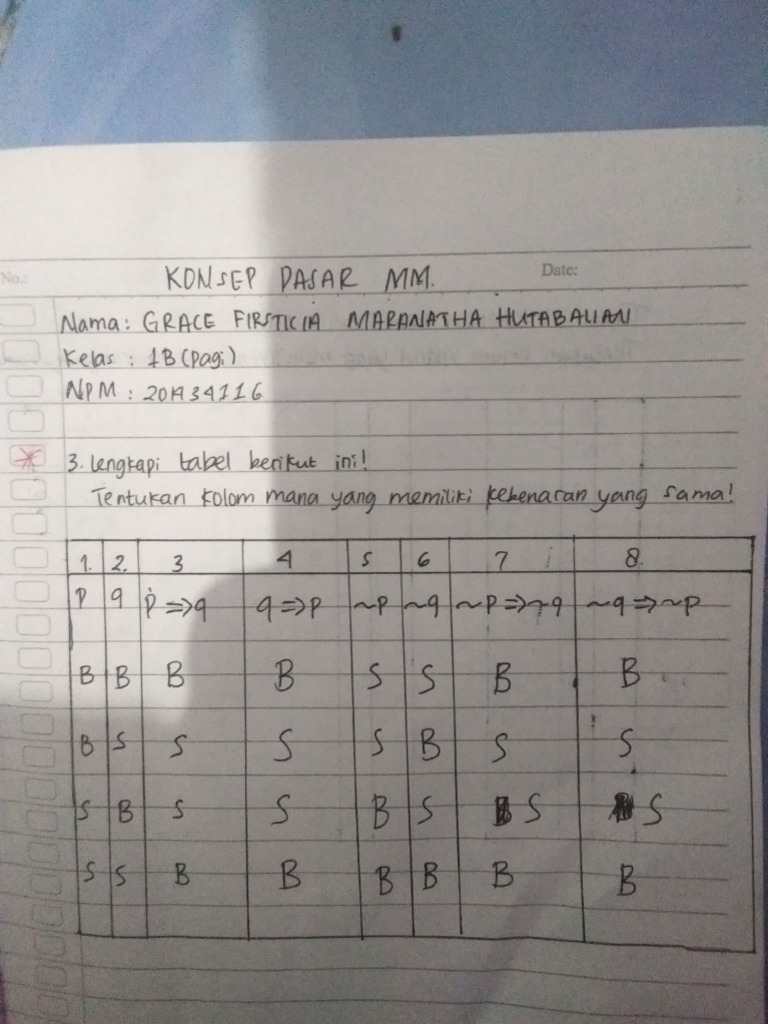 No.:
Date:
KONSEP DASAR MM.
Nama: GRACE FIRSTICIA MARANATHA HUTABALIAN
Kelas : 1B (Pagi)
NPM : 201434116
3. Lengkapi tabel berikut ini!
Tentukan kolom mana yang memiliki kebenaran yang sama!
1. 2. 3 4 5 6 7 8
p q p => q q => p ~p ~q ~p => ~q ~q => ~p
B B B B S S B B
B S S S S B S S
S B S S B S S S
S S B B B B B B